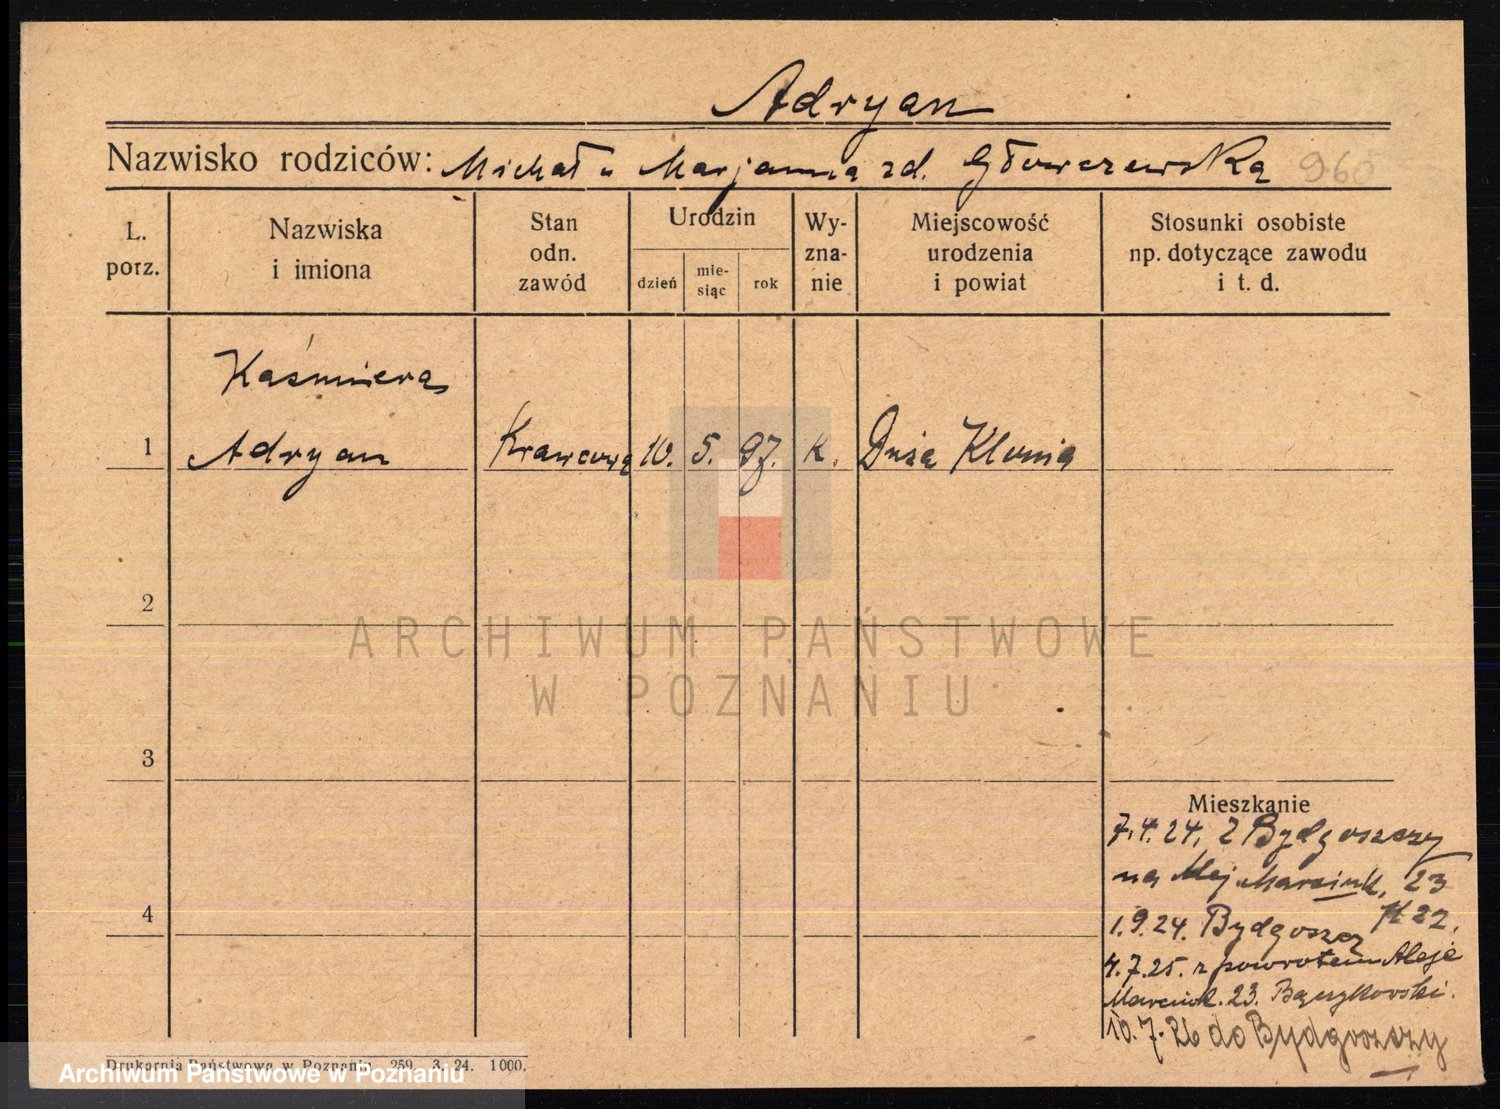 Adryan
Nazwisko rodziców: Michał u Marjanna zd. Głowczewska 960
L. porz.
Nazwiska i imiona
Stan odn. zawód
Urodzin
dzień
mie-siąc
rok
Wy-zna-nie
Miejscowość urodzenia i powiat
Stosunki osobiste np. dotyczące zawodu i t. d.
Kaśmiera
1 Adryan Krawcowa 10. 5. 97. k. Duża Klonia
2
ARCHIWUM PAŃSTWOWE
W POZNANIU
3
Mieszkanie
7.4.24. z Bydgoszczy
na Alej Marcink. 23
4
1.9.24. Bydgoszcz 22.
4.7.25. z powrotem Aleje
Marcink. 23. Bączykowski.
10.7.26 do Bydgoszczy
Drukarnia Państwowa w Poznaniu 259. 3. 24. 1000.
Archiwum Państwowe w Poznaniu